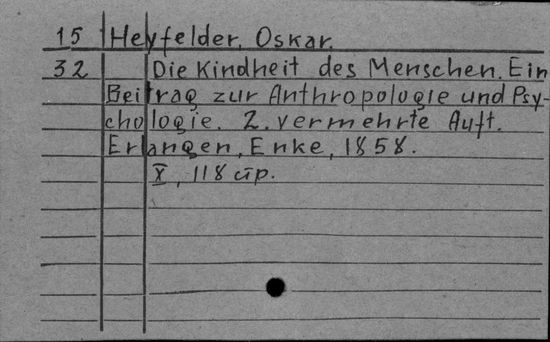 15 Heyfelder, Oskar.
32 Die Kindheit des Menschen. Ein
Beitrag zur Anthropologie und Psy-
chologie. 2. vermehrte Aufl.
Erlangen, Enke, 1858.
X, 118 стр.